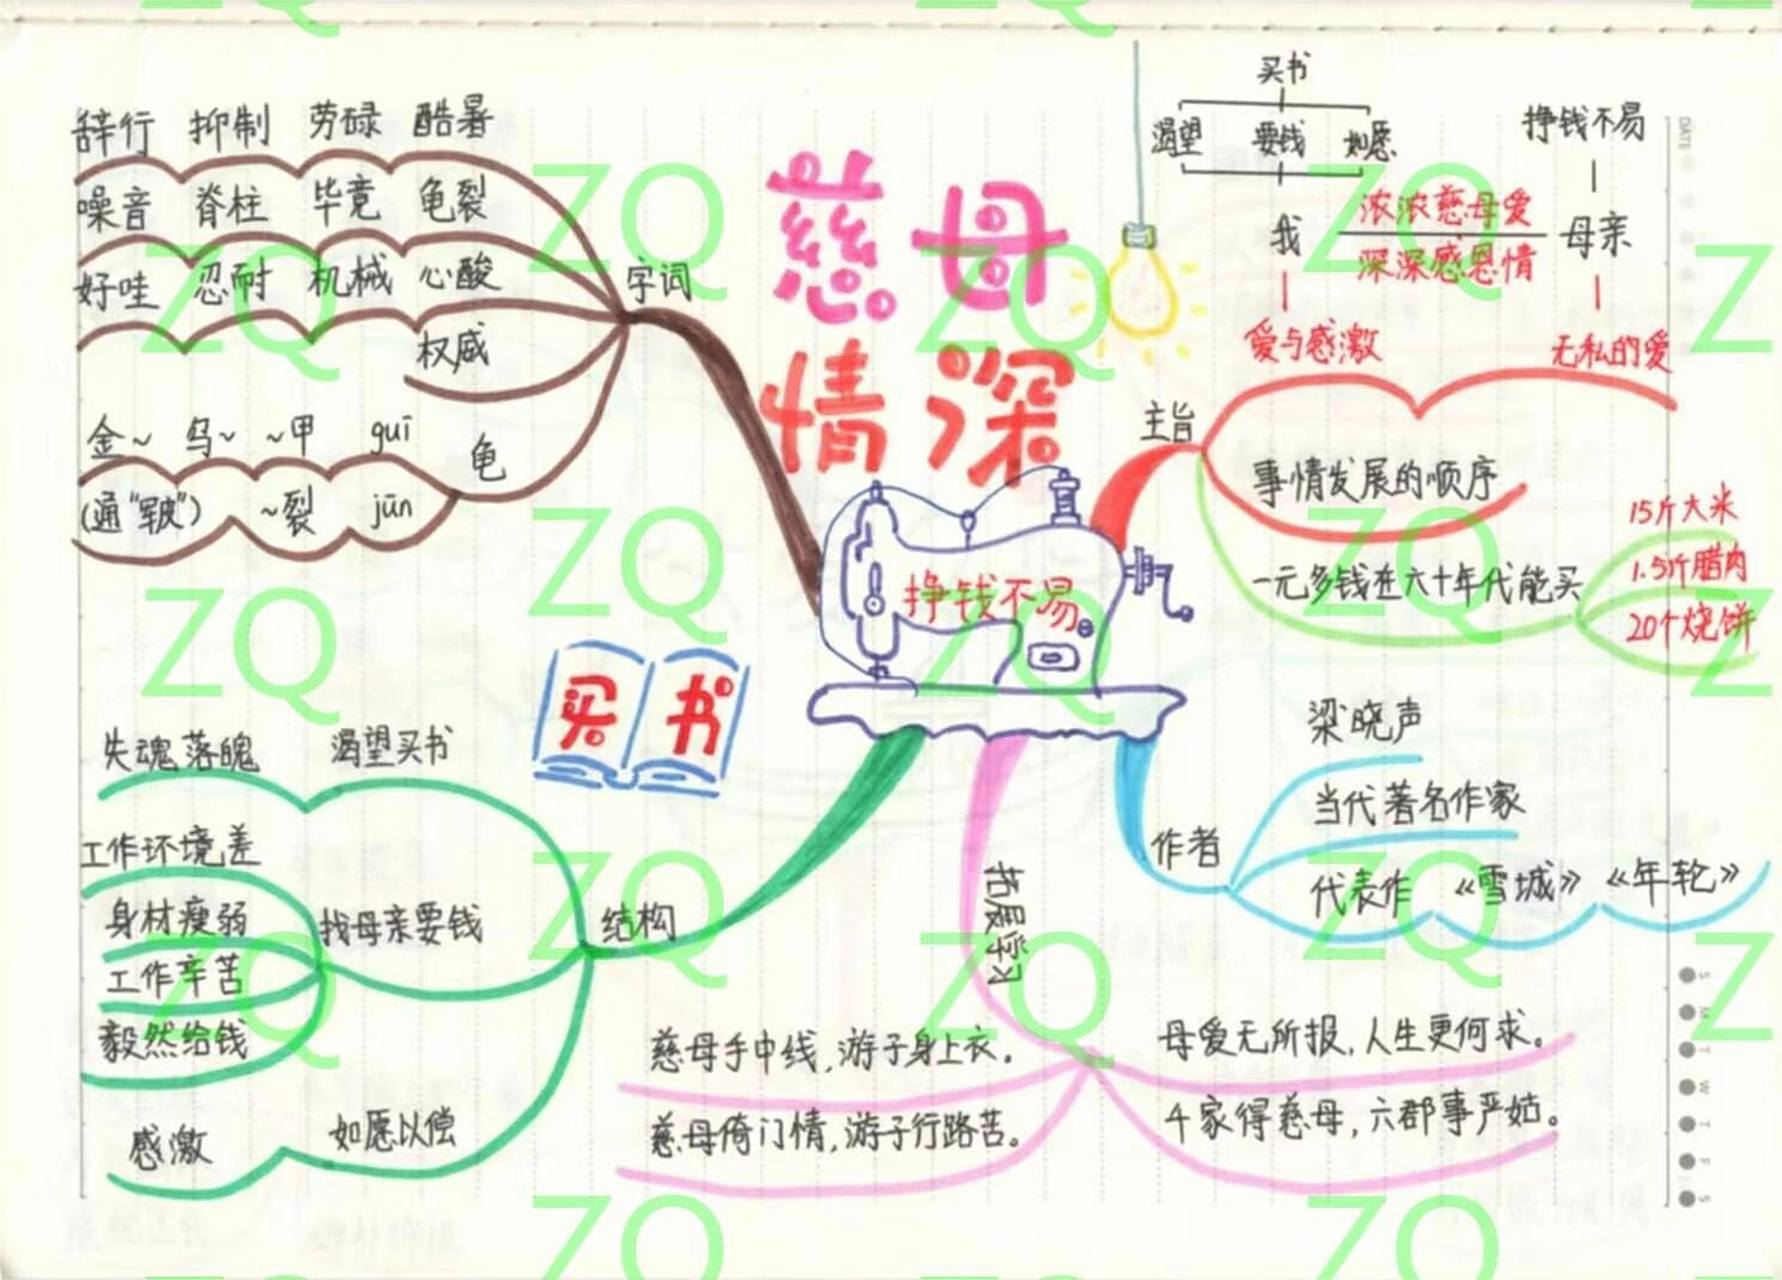 慈母
情深
挣钱不易
买书
字词
辞行 抑制 劳碌 酷暑
噪音 脊柱 毕竟 龟裂
好哇 忍耐 机械 心酸
权威
龟
金~ 乌~ ~甲 guī
(通“皲”) ~裂 jūn
主旨
买书
渴望 要钱 如愿
我
爱与感激
浓浓慈母爱
深深感恩情
挣钱不易
母亲
无私的爱
事情发展的顺序
一元多钱在六十年代能买
15斤大米
1.5斤腊肉
20个烧饼
作者
梁晓声
当代著名作家
代表作 《雪城》 《年轮》
拓展学习
慈母手中线,游子身上衣。
慈母倚门情,游子行路苦。
母爱无所报,人生更何求。
千家得慈母,六郡事严姑。
结构
失魂落魄 渴望买书
找母亲要钱
工作环境差
身材瘦弱
工作辛苦
毅然给钱
感激 如愿以偿
DATE
S
M
T
W
T
F
S
ZQ